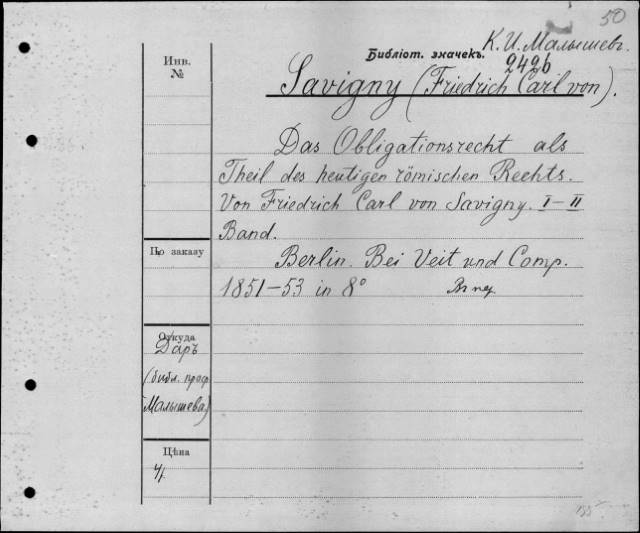 50
К. И. Малышевъ.
Инв.
№
Библіот. значекъ.
2426
Savigny (Friedrich Carl von).
Das Obligationsrecht als
Theil des heutigen römischen Rechts.
Von Friedrich Carl von Savigny. I–II
Band.
По заказу
Berlin. Bei Veit und Comp.
1851–53 in 8°
Откуда
Даръ
(библ. проф.
Малышева)
Цѣна